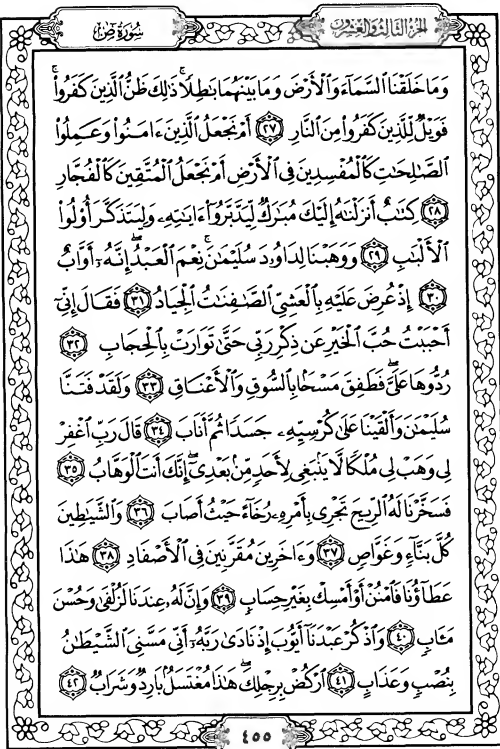 سُورَةُ صٓ الجُزْءُ الثَّالِثُ وَالعِشْرُونَ
وَمَا خَلَقْنَا ٱلسَّمَآءَ وَٱلْأَرْضَ وَمَا بَيْنَهُمَا بَٰطِلًا ۚ ذَٰلِكَ ظَنُّ ٱلَّذِينَ كَفَرُوا۟ ۚ
فَوَيْلٌ لِّلَّذِينَ كَفَرُوا۟ مِنَ ٱلنَّارِ ﴿٢٧﴾ أَمْ نَجْعَلُ ٱلَّذِينَ ءَامَنُوا۟ وَعَمِلُوا۟
ٱلصَّٰلِحَٰتِ كَٱلْمُفْسِدِينَ فِى ٱلْأَرْضِ أَمْ نَجْعَلُ ٱلْمُتَّقِينَ كَٱلْفُجَّارِ
﴿٢٨﴾ كِتَٰبٌ أَنزَلْنَٰهُ إِلَيْكَ مُبَٰرَكٌ لِّيَدَّبَّرُوٓا۟ ءَايَٰتِهِۦ وَلِيَتَذَكَّرَ أُو۟لُوا۟
ٱلْأَلْبَٰبِ ﴿٢٩﴾ وَوَهَبْنَا لِدَاوُۥدَ سُلَيْمَٰنَ ۚ نِعْمَ ٱلْعَبْدُ ۖ إِنَّهُۥٓ أَوَّابٌ
﴿٣٠﴾ إِذْ عُرِضَ عَلَيْهِ بِٱلْعَشِىِّ ٱلصَّٰفِنَٰتُ ٱلْجِيَادُ ﴿٣١﴾ فَقَالَ إِنِّىٓ
أَحْبَبْتُ حُبَّ ٱلْخَيْرِ عَن ذِكْرِ رَبِّى حَتَّىٰ تَوَارَتْ بِٱلْحِجَابِ ﴿٣٢﴾
رُدُّوهَا عَلَىَّ ۖ فَطَفِقَ مَسْحًۢا بِٱلسُّوقِ وَٱلْأَعْنَاقِ ﴿٣٣﴾ وَلَقَدْ فَتَنَّا
سُلَيْمَٰنَ وَأَلْقَيْنَا عَلَىٰ كُرْسِيِّهِۦ جَسَدًا ثُمَّ أَنَابَ ﴿٣٤﴾ قَالَ رَبِّ ٱغْفِرْ
لِى وَهَبْ لِى مُلْكًا لَّا يَنۢبَغِى لِأَحَدٍ مِّنۢ بَعْدِىٓ ۖ إِنَّكَ أَنتَ ٱلْوَهَّابُ ﴿٣٥﴾
فَسَخَّرْنَا لَهُ ٱلرِّيحَ تَجْرِى بِأَمْرِهِۦ رُخَآءً حَيْثُ أَصَابَ ﴿٣٦﴾ وَٱلشَّيَٰطِينَ
كُلَّ بَنَّآءٍ وَغَوَّاصٍ ﴿٣٧﴾ وَءَاخَرِينَ مُقَرَّنِينَ فِى ٱلْأَصْفَادِ ﴿٣٨﴾ هَٰذَا
عَطَآؤُنَا فَٱمْنُنْ أَوْ أَمْسِكْ بِغَيْرِ حِسَابٍ ﴿٣٩﴾ وَإِنَّ لَهُۥ عِندَنَا لَزُلْفَىٰ وَحُسْنَ
مَـَٔابٍ ﴿٤٠﴾ وَٱذْكُرْ عَبْدَنَآ أَيُّوبَ إِذْ نَادَىٰ رَبَّهُۥٓ أَنِّى مَسَّنِىَ ٱلشَّيْطَٰنُ
بِنُصْبٍ وَعَذَابٍ ﴿٤١﴾ ٱرْكُضْ بِرِجْلِكَ ۖ هَٰذَا مُغْتَسَلٌۢ بَارِدٌ وَشَرَابٌ ﴿٤٢﴾
٤٥٥